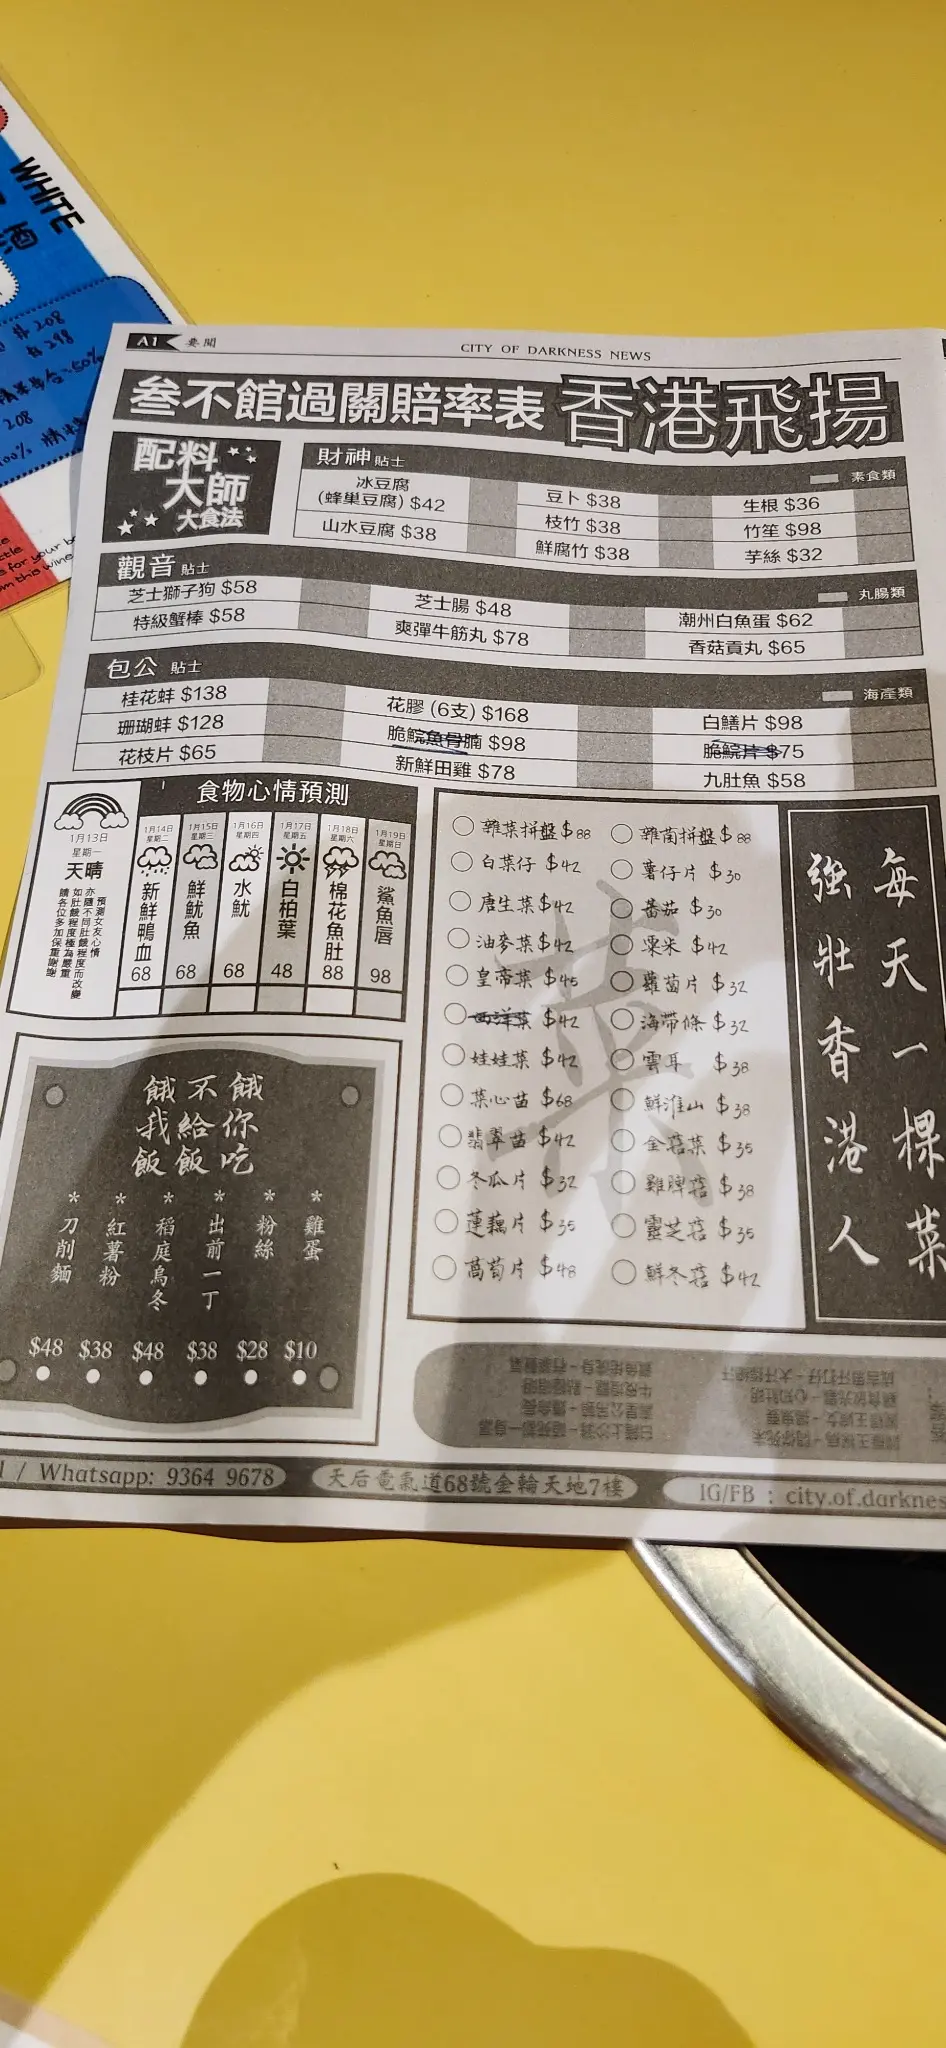 WHITE
酒
$208
$298
208
A1 要聞
CITY OF DARKNESS NEWS
叁不館過關賠率表 香港飛揚
配料
大師
大食法
財神 貼士
素食類
冰豆腐
(蜂巢豆腐) $42
豆卜 $38
生根 $36
山水豆腐 $38
枝竹 $38
竹笙 $98
鮮腐竹 $38
芋絲 $32
觀音 貼士
丸腸類
芝士獅子狗 $58
芝士腸 $48
潮州白魚蛋 $62
特級蟹棒 $58
爽彈牛筋丸 $78
香菇貢丸 $65
包公 貼士
海產類
桂花蚌 $138
花膠 (6支) $168
白鱔片 $98
珊瑚蚌 $128
脆鯇魚骨腩 $98
脆鯇片 $75
花枝片 $65
新鮮田雞 $78
九肚魚 $58
食物心情預測
1月13日
星期一
天晴
預測女友心情
亦隨不同肚餓程度而改變
如肚餓程度極為嚴重
請各位多加保重謝謝
1月14日
星期二
新鮮鴨血
68
1月15日
星期三
鮮魷魚
68
1月16日
星期四
水魷
68
1月17日
星期五
白柏葉
48
1月18日
星期六
棉花魚肚
88
1月19日
星期日
鯊魚唇
98
菜
雜菜拼盤 $88
白菜仔 $42
唐生菜 $42
油麥菜 $42
皇帝菜 $45
西洋菜 $42
娃娃菜 $42
菜心苗 $68
翡翠苗 $42
冬瓜片 $32
蓮藕片 $35
萵筍片 $48
雜菌拼盤 $88
薯仔片 $30
番茄 $30
粟米 $42
蘿蔔片 $32
海帶條 $32
雲耳 $38
鮮淮山 $38
金菇菜 $35
雞脾菇 $38
靈芝菇 $35
鮮冬菇 $42
每天一棵菜
強壯香港人
餓不餓
我給你
飯飯吃
* 刀削麵 $48
* 紅薯粉 $38
* 稻庭烏冬 $48
* 出前一丁 $38
* 粉絲 $28
* 雞蛋 $10
/ Whatsapp: 9364 9678
天后電氣道68號金輪天地7樓
IG/FB : city.of.darknes